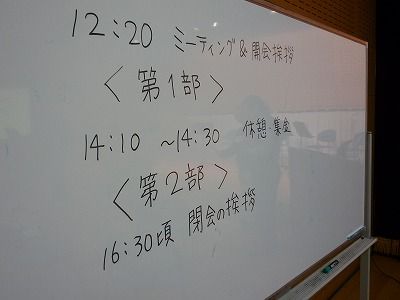 12:20 ミーティング&開会挨拶
<第1部>
14:10 ~14:30 休憩・集金
<第2部>
16:30頃 閉会の挨拶